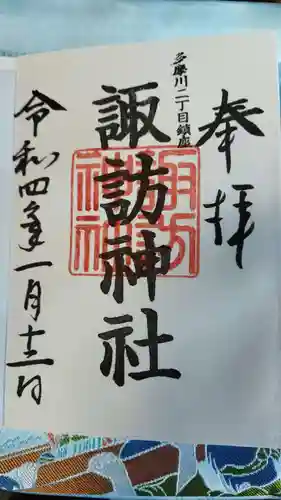 奉拝
多摩川二丁目鎮座
諏訪神社
諏訪神社
令和四年一月十三日